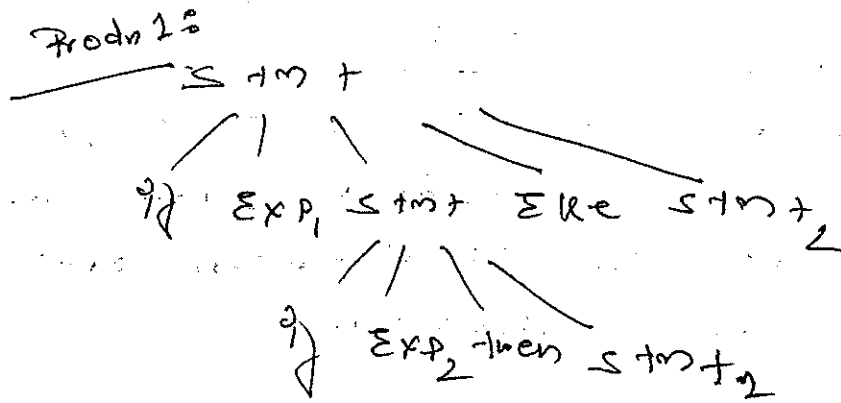 Prodn 1:
Stmt
If Exp1 Stmt Else Stmt2
If Exp2 then Stmt2